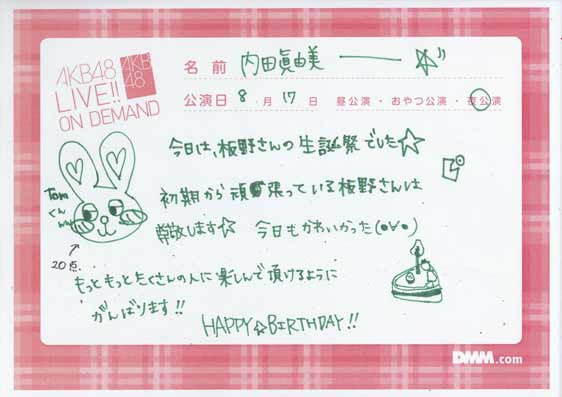 AKB48
LIVE!!
ON DEMAND
AKB
48
名前 内田眞由美
公演日 8 月 17 日 昼公演・おやつ公演・夜公演
今日は、板野さんの生誕祭でした☆
初期から頑張っている板野さんは
尊敬します☆ 今日もかわいかった(●∀●)
Tom
くん
20点
もっともっとたくさんの人に楽しんで頂けるように
がんばります!!
HAPPY☆BIRTHDAY!!
DMM.com